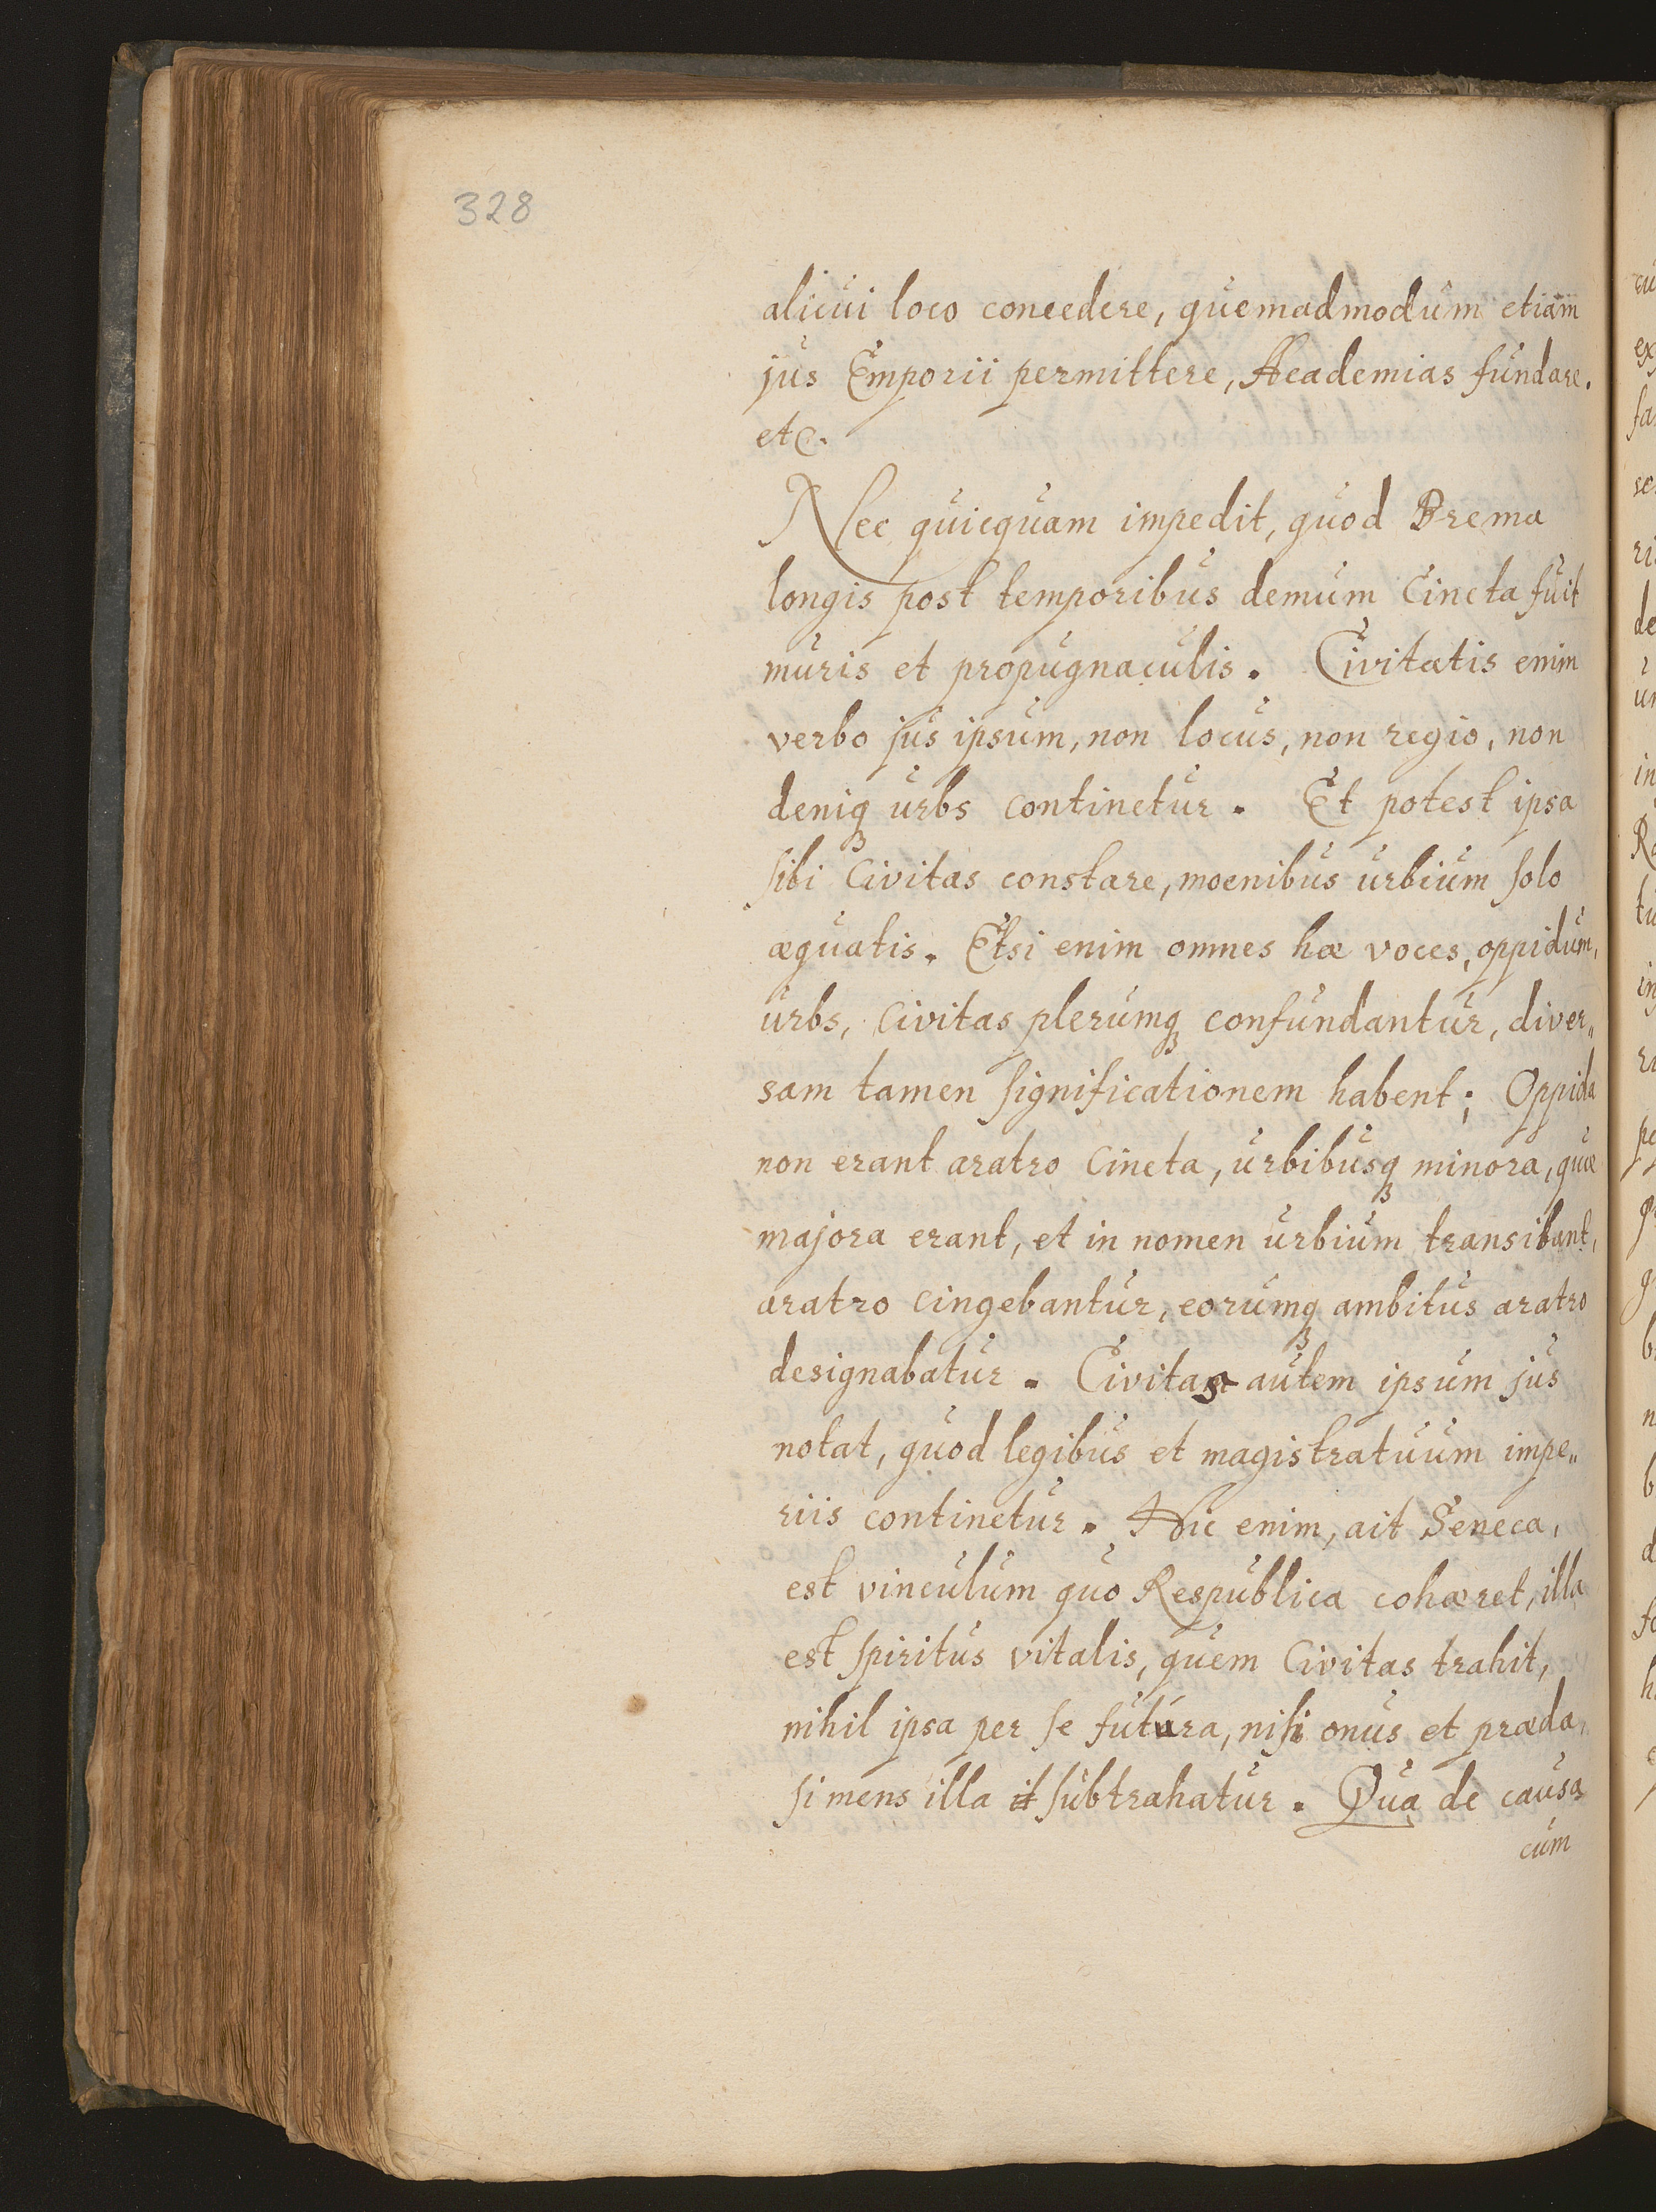 328
alicui loco concedere, quemadmodum etiam
jus Emporii permittere, Academias fundare.
etc.
Nec quicquam impedit, quod Brema
longis post temporibus demum Cincta fuit
muris et propugnaculis. Civitatis enim
verbo jus ipsum, non locus, non regio, non
deniqꝫ urbs continetur. Et potest ipsa
sibi Civitas constare, moenibus urbium solo
æquatis. Etsi enim omnes hæ voces, oppidum,
urbs, civitas plerumqꝫ confundantur, diver„
sam tamen significationem habent; Oppida
non erant aratro Cincta, urbibusqꝫ minora, quæ
majora erant, et in nomen urbium transibant,
aratro cingebantur, eorumqꝫ ambitus aratro
designabatur. Civitas autem ipsum jus
notat, quod legibus et magistratuum impe„
riis continetur. Hic enim, ait Seneca,
est vinculum quo Respublica cohæret, illa
est spiritus vitalis, quem Civitas trahit,
nihil ipsa per se futura, nisi onus et præda,
si mens illa subtrahatur. Qua de causa
cum